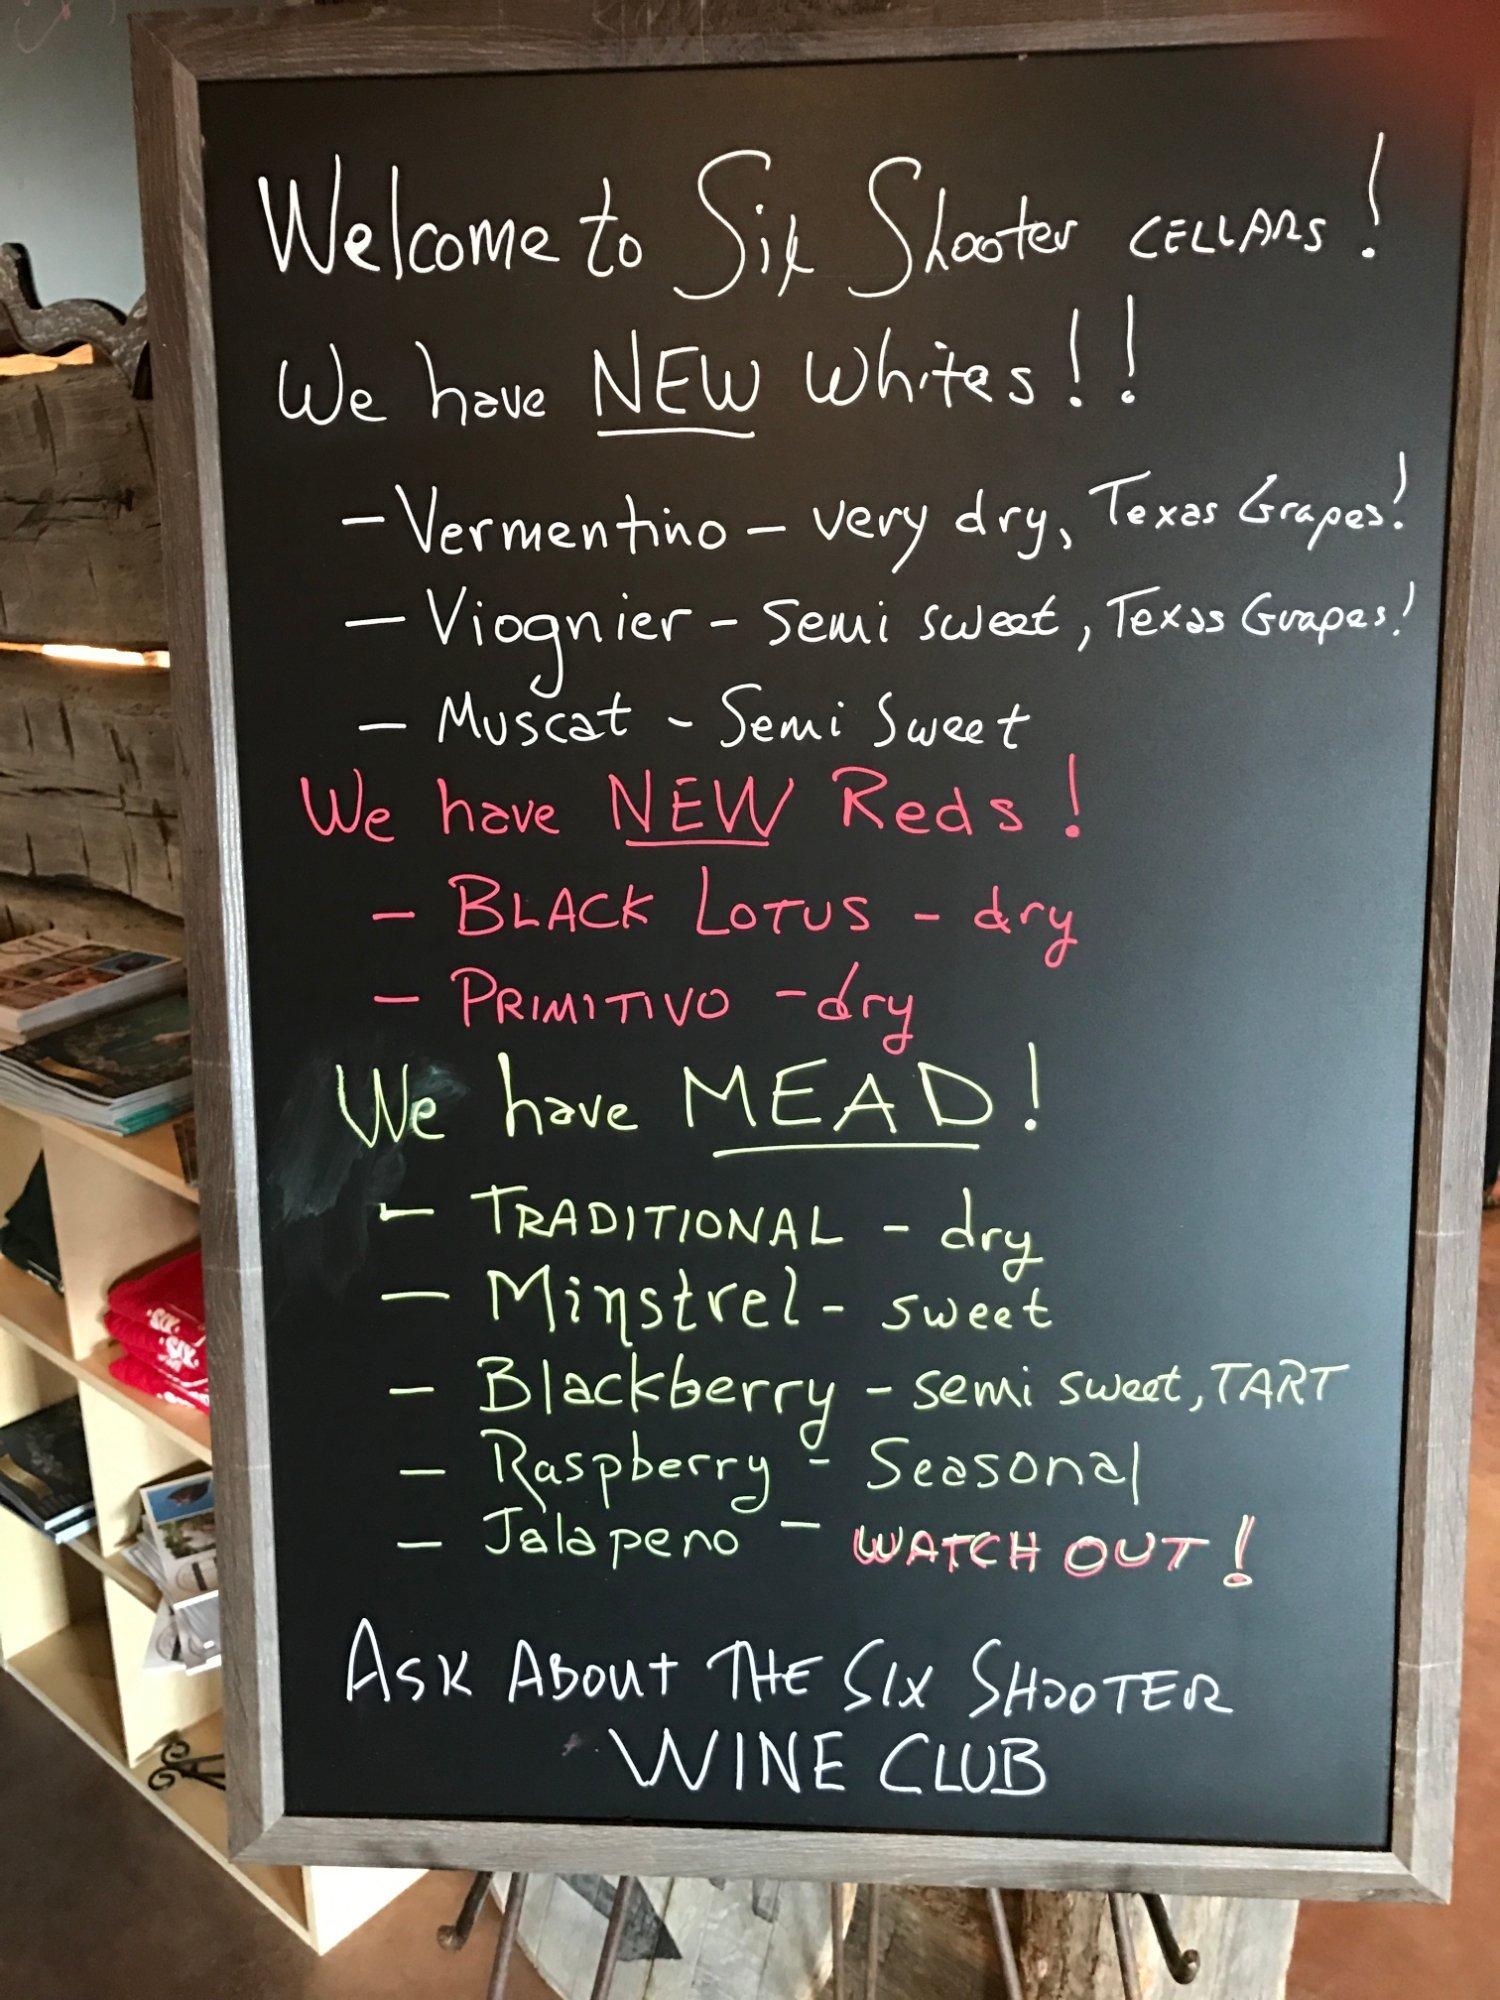 Welcome to Six Shooter CELLARS!
We have NEW Whites!!
- Vermentino - very dry, Texas Grapes!
- Viognier - Semi sweet, Texas Grapes!
- Muscat - Semi Sweet
We have NEW Reds!
- BLACK LOTUS - dry
- PRIMITIVO - dry
We have MEAD!
- TRADITIONAL - dry
- Minstrel - sweet
- Blackberry - semi sweet, TART
- Raspberry - Seasonal
- Jalapeno - WATCH OUT!
ASK ABOUT THE SIX SHOOTER
WINE CLUB
SIX